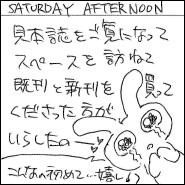 SATURDAY AFTERNOON
見本誌をご覧になって
スペースを訪ねて
既刊と新刊を
買って
くださった方が
いらしたの→
こんなの初めて…嬉し♪